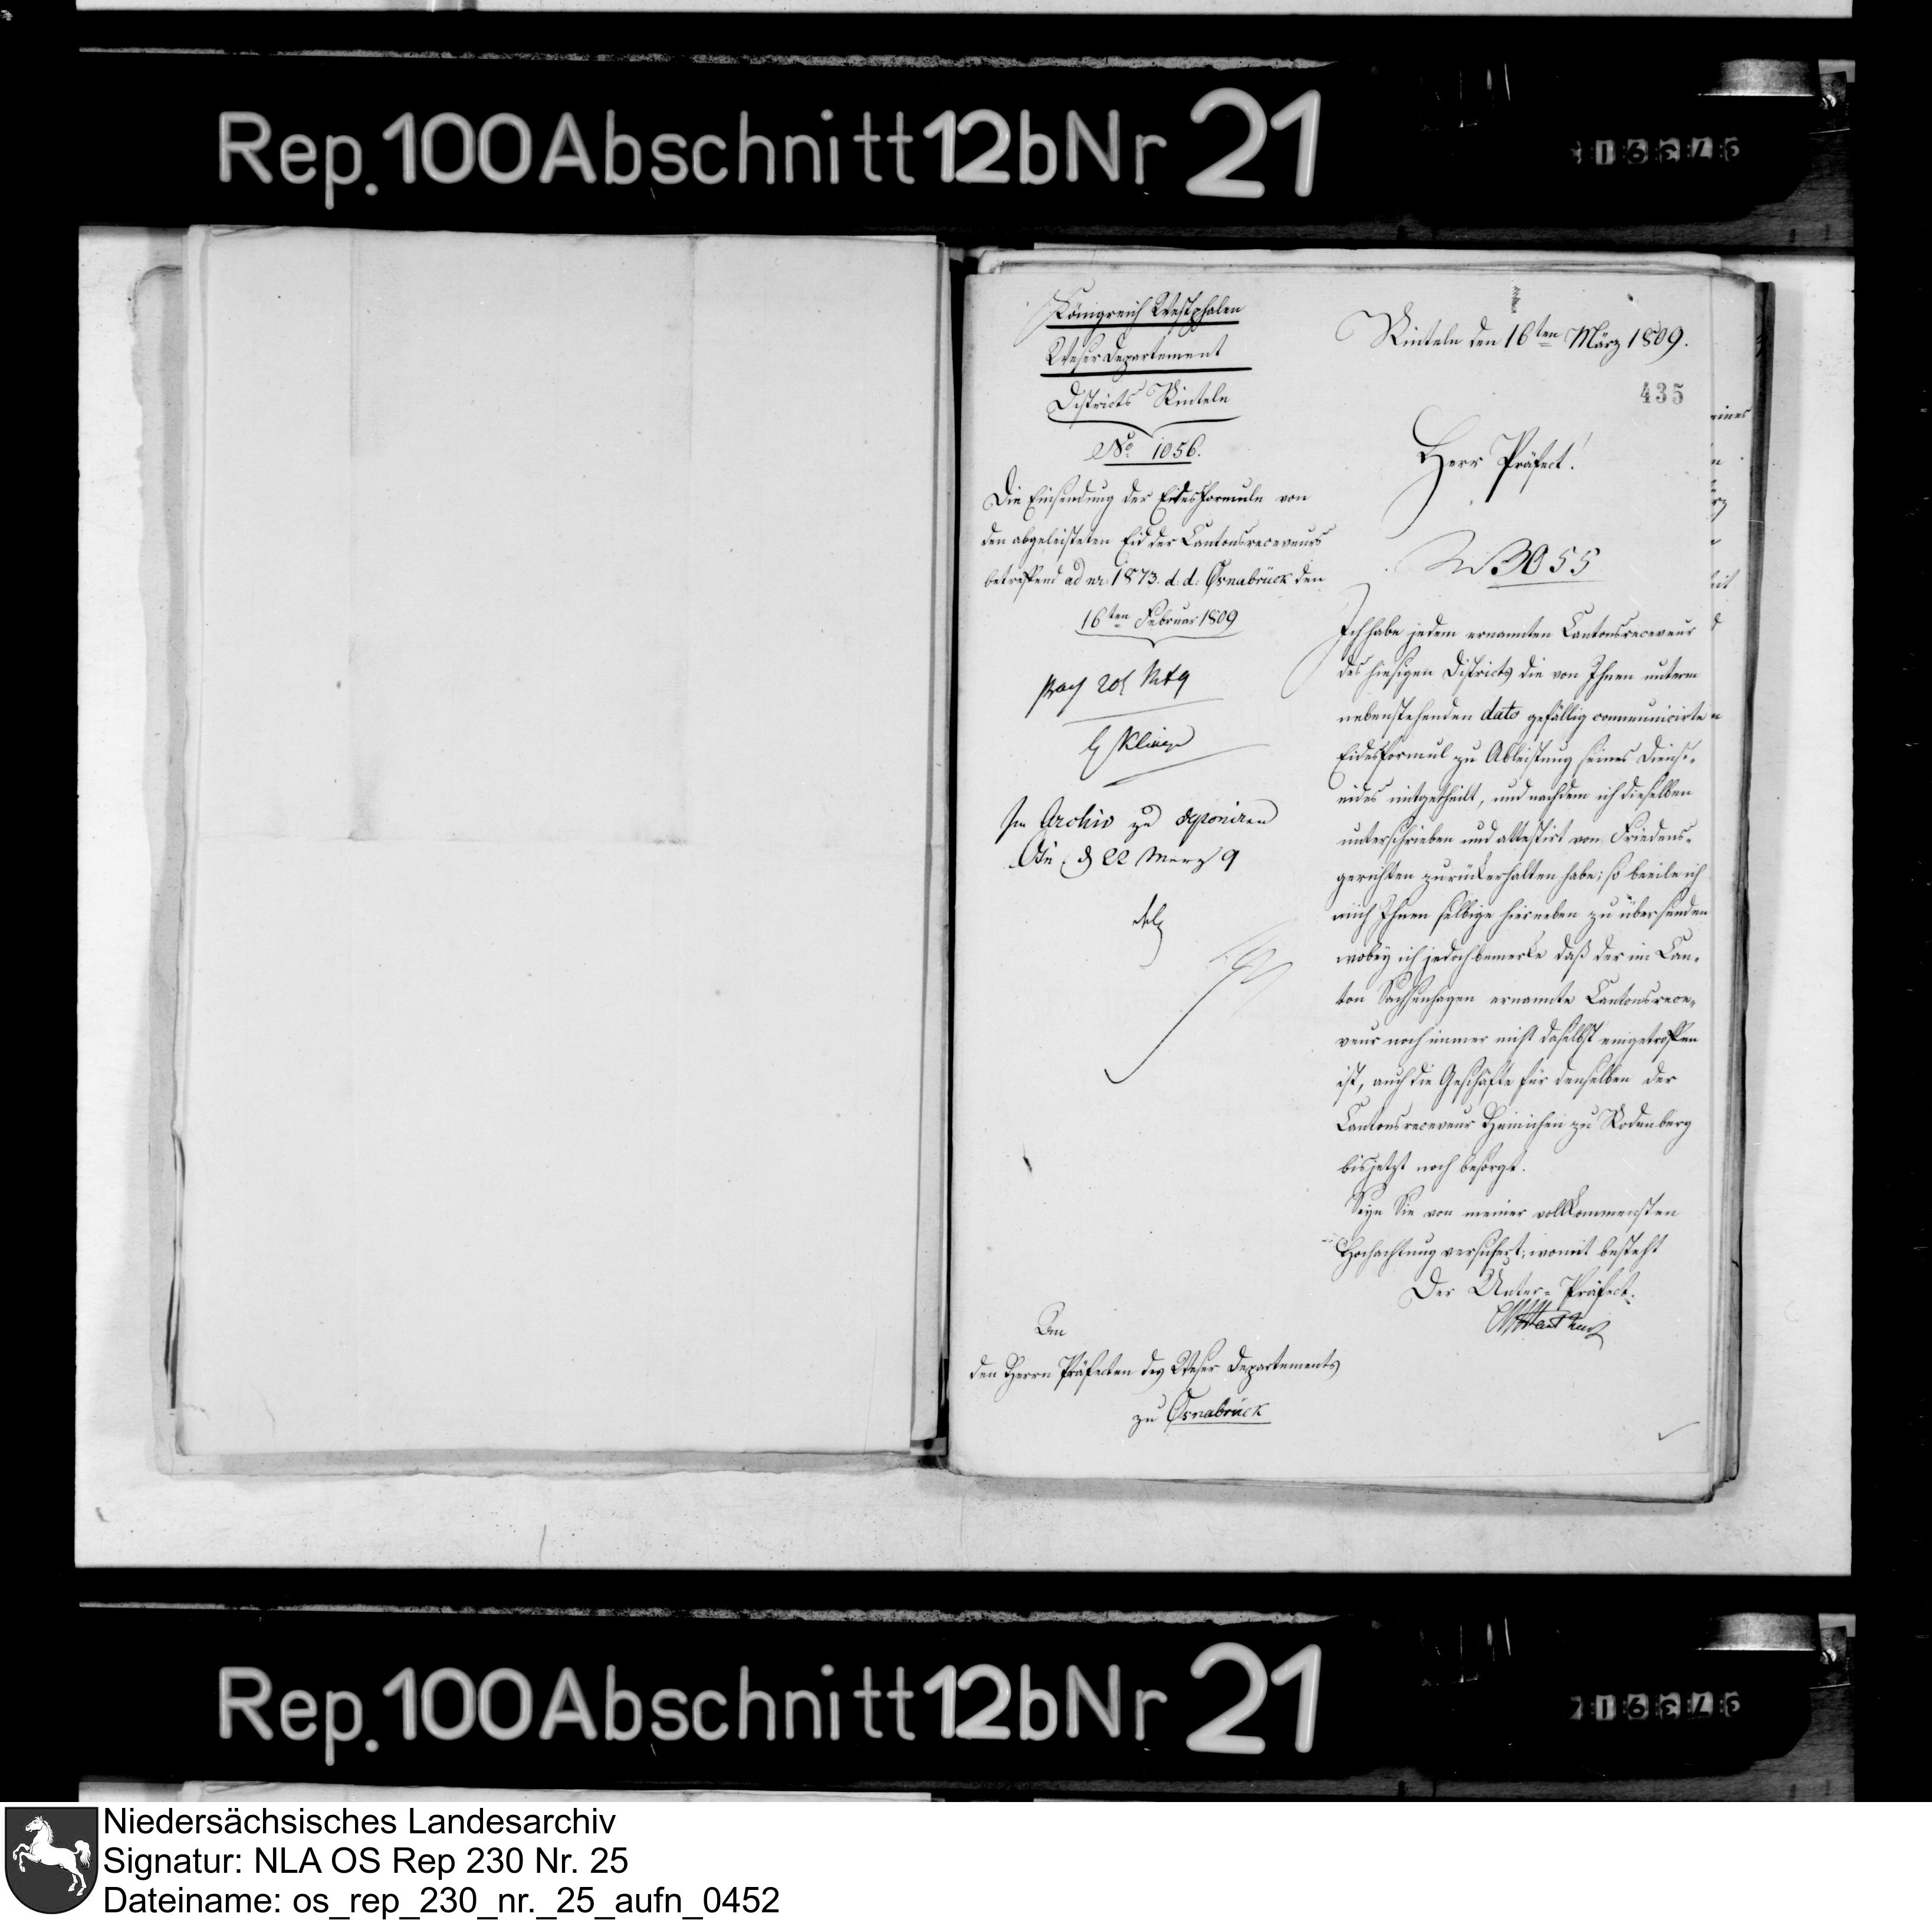 Rep. 100 Abschnitt 12b Nr 21
Königreich Westphalen
Weser Departement
Districts Rinteln
No. 1056.
Die Einsendung der Eidesformuln von
den abgeleisteten Eid der Cantonsreceveurs
betreffend ad nr. 1873. d. d. Osnabrück den
16ten Februar 1809
Im Archiv zu deponiren
22 Merz 9
An
den Herrn Präfecten des Weser Departements
zu Osnabrück
Rinteln den 16ten März 1809.
435
Herr Präfect!
3055
Ich habe jedem ernannten Cantonsreceveur
des hiesigen Districts die von Ihnen unterm
nebenstehenden dato gefällig communicirten
Eidesformul zu Ableistung seines Dienst-
eides mitgetheilt, und nachdem ich dieselben
unterschrieben und attestirt von Friedens-
gerichten zurückerhalten habe; so beeile ich
mich Ihnen selbige hierneben zu übersenden
wobey ich jedoch bemerke daß der im Can-
ton Sachsenhagen ernannte Cantonsrece-
veur noch immer nicht daselbst eingetroffen
ist, auch die Geschäfte für denselben der
Cantonsreceveur Heinichen zu Rodenberg
bis jetzt noch besorgt.
Seyn Sie von meiner vollkommensten
Hochachtung versichert; womit besteht
Der Unter-Präfect.
Rep. 100 Abschnitt 12b Nr 21
Niedersächsisches Landesarchiv
Signatur: NLA OS Rep 230 Nr. 25
Dateiname: os_rep_230_nr._25_aufn_0452